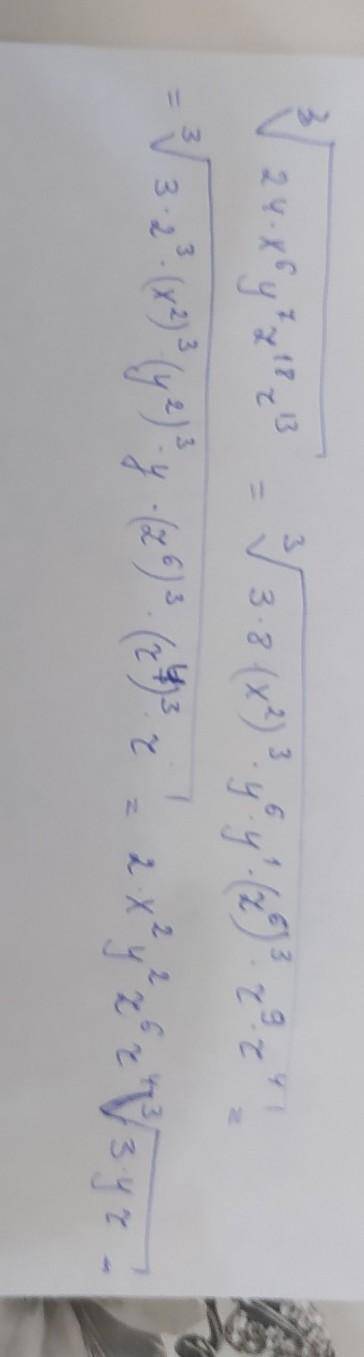 ∛(24·x⁶y⁷z¹⁸z¹³) = ∛(3·8·(x²)³·y⁶·y¹·(z⁶)³·z⁹·z⁴) =
= ∛(3·2³·(x²)³·(y²)³·y·(z⁶)³·(z⁴)³·z) = 2·x²y²z⁶z⁴∛(3·yz) =